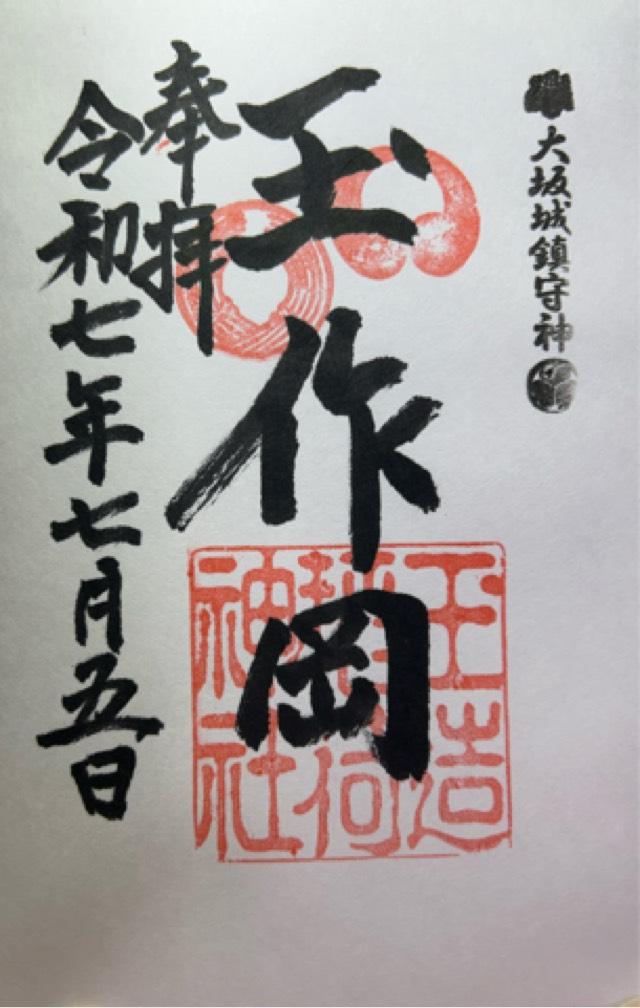 大坂城鎮守神
玉作岡
玉造
稲荷
神社
奉拝
令和七年七月五日